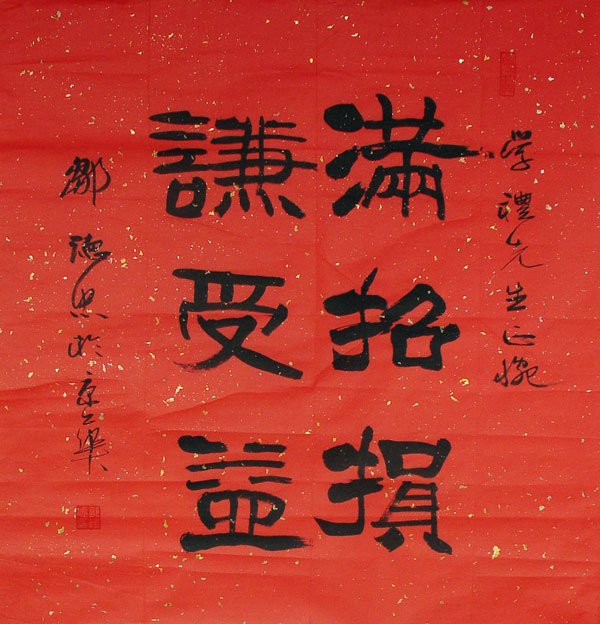 学禮先生正腕
滿招損
謙受益
鄒德忠於京華